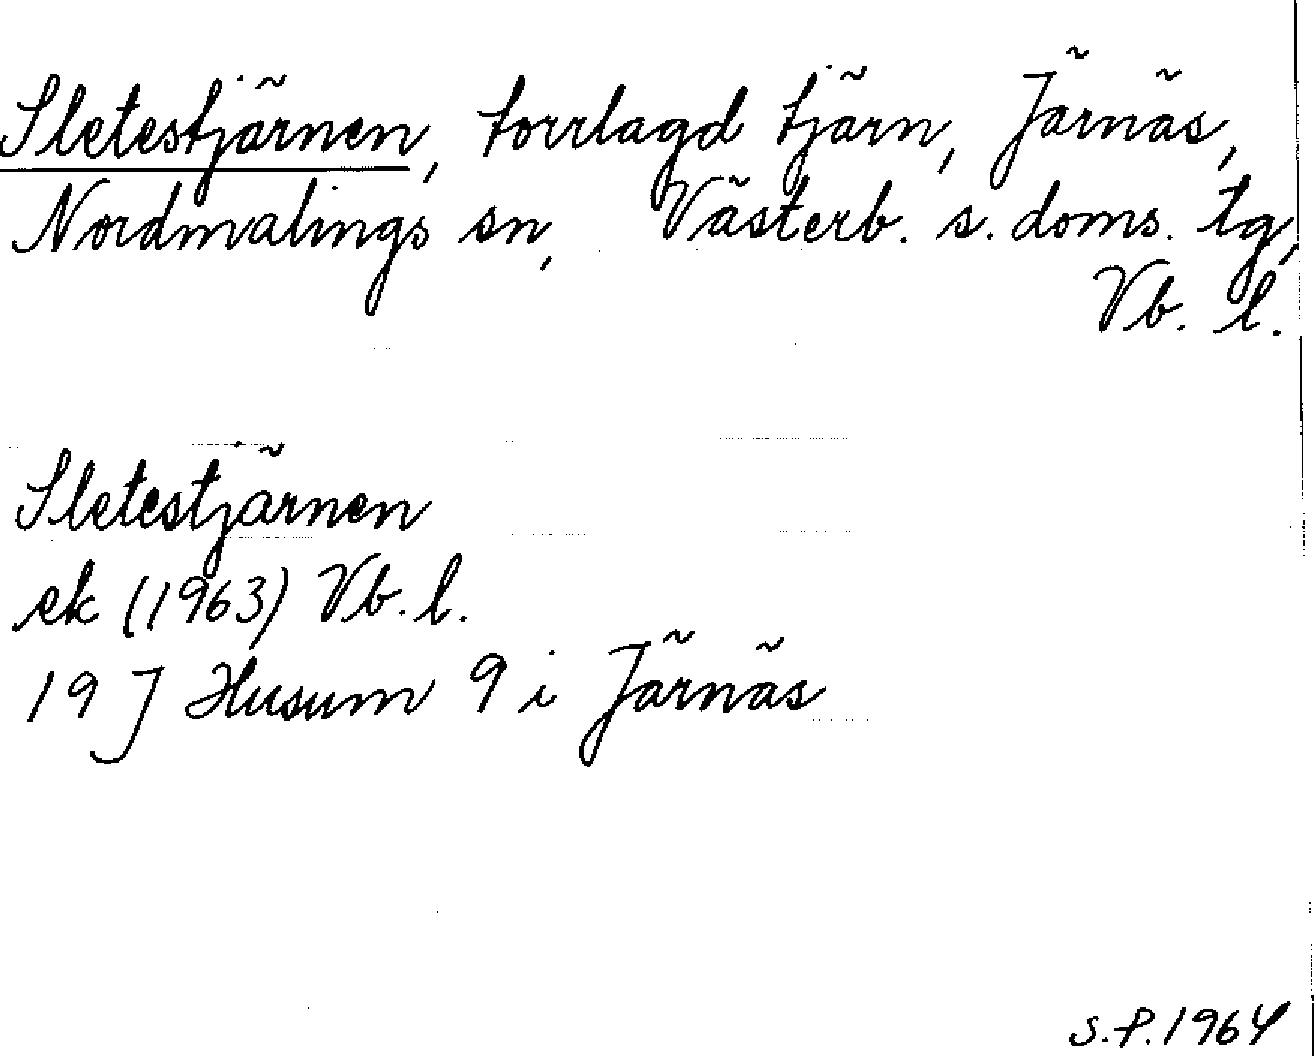 Sletestjärnen, torrlagd tjärn, Järnäs,
Nordmalings sn, Västerb. s. doms. tg,
Vb. l.
Sletestjärnen
ek (1963) Vb. l.
19 J Husum 9 i Järnäs
S.P. 1964